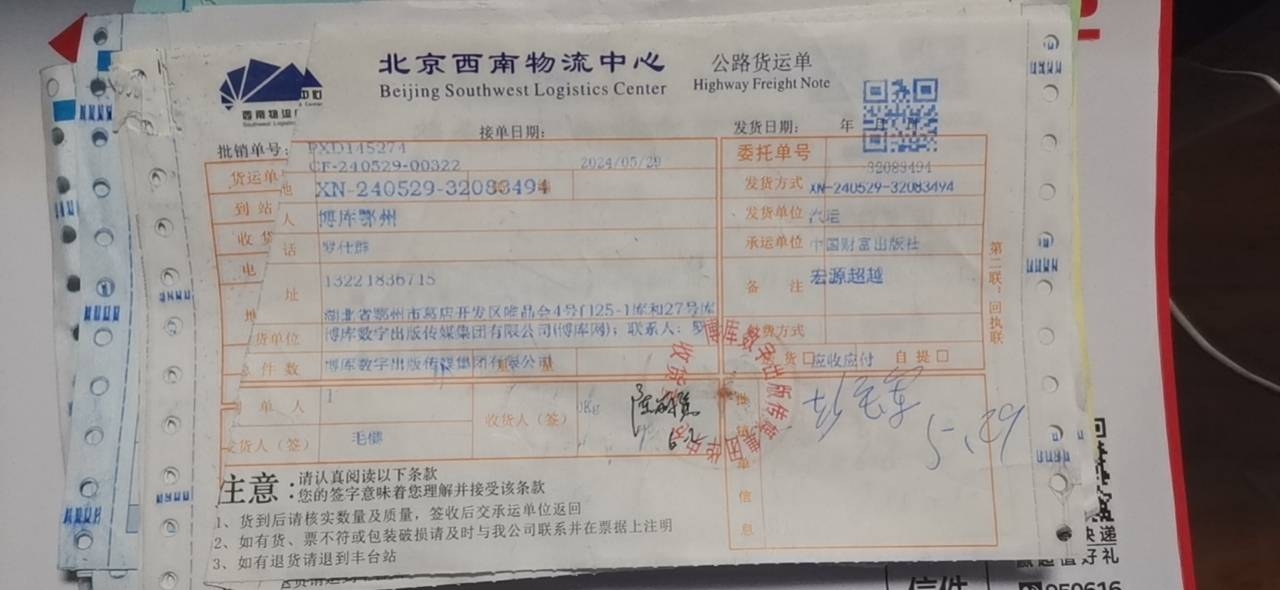 北京西南物流中心
公路货运单
Beijing Southwest Logistics Center
Highway Freight Note
西南物流
接单日期：
发货日期： 年 月
批销单号：
PXD145274
CF-240529-00322
2024/05/29
委托单号
32083494
货运单
XN-240529-32083494
发货方式
XN-240529-32083494
到站
人
博库鄂州
发货单位
汽运
收货
话
罗仕群
承运单位
中国财富出版社
电
13221836715
备注
宏源超越
址
湖北省鄂州市葛店开发区唯品会4号门25-1库和27号库
货单位
博库数字出版传媒集团有限公司(博库网)；联系人：罗
付费方式
总件数
博库数字出版传媒集团有限公司
货
应收应付
自提
单人
1
收货人（签）
0Kg
发货人（签）
毛健
单信息
5.29
第二联：回执联
注意：
请认真阅读以下条款
您的签字意味着您理解并接受该条款
1、货到后请核实数量及质量，签收后交承运单位返回
2、如有货、票不符或包装破损请及时与我公司联系并在票据上注明
3、如有退货请退到丰台站
快递
赢超值好礼